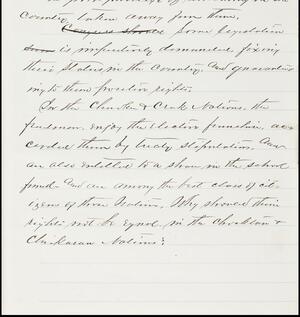 Country, taken away from them,
Congress should Some legislation
is imperatively demanded, fixing
their Status, in the Country, And guarantee
ing to them positive rights.
In the Cherokee & Creek Nations, the
freedmen, enjoy the Elective franchise, ac-
corded them by treaty stipulation. And
are also entitled to a share, in the school
fund. And are among the best class of cit-
izens of those Nations. Why should their
rights not be equal, in the Choctaw &
Chickasaw Nations?